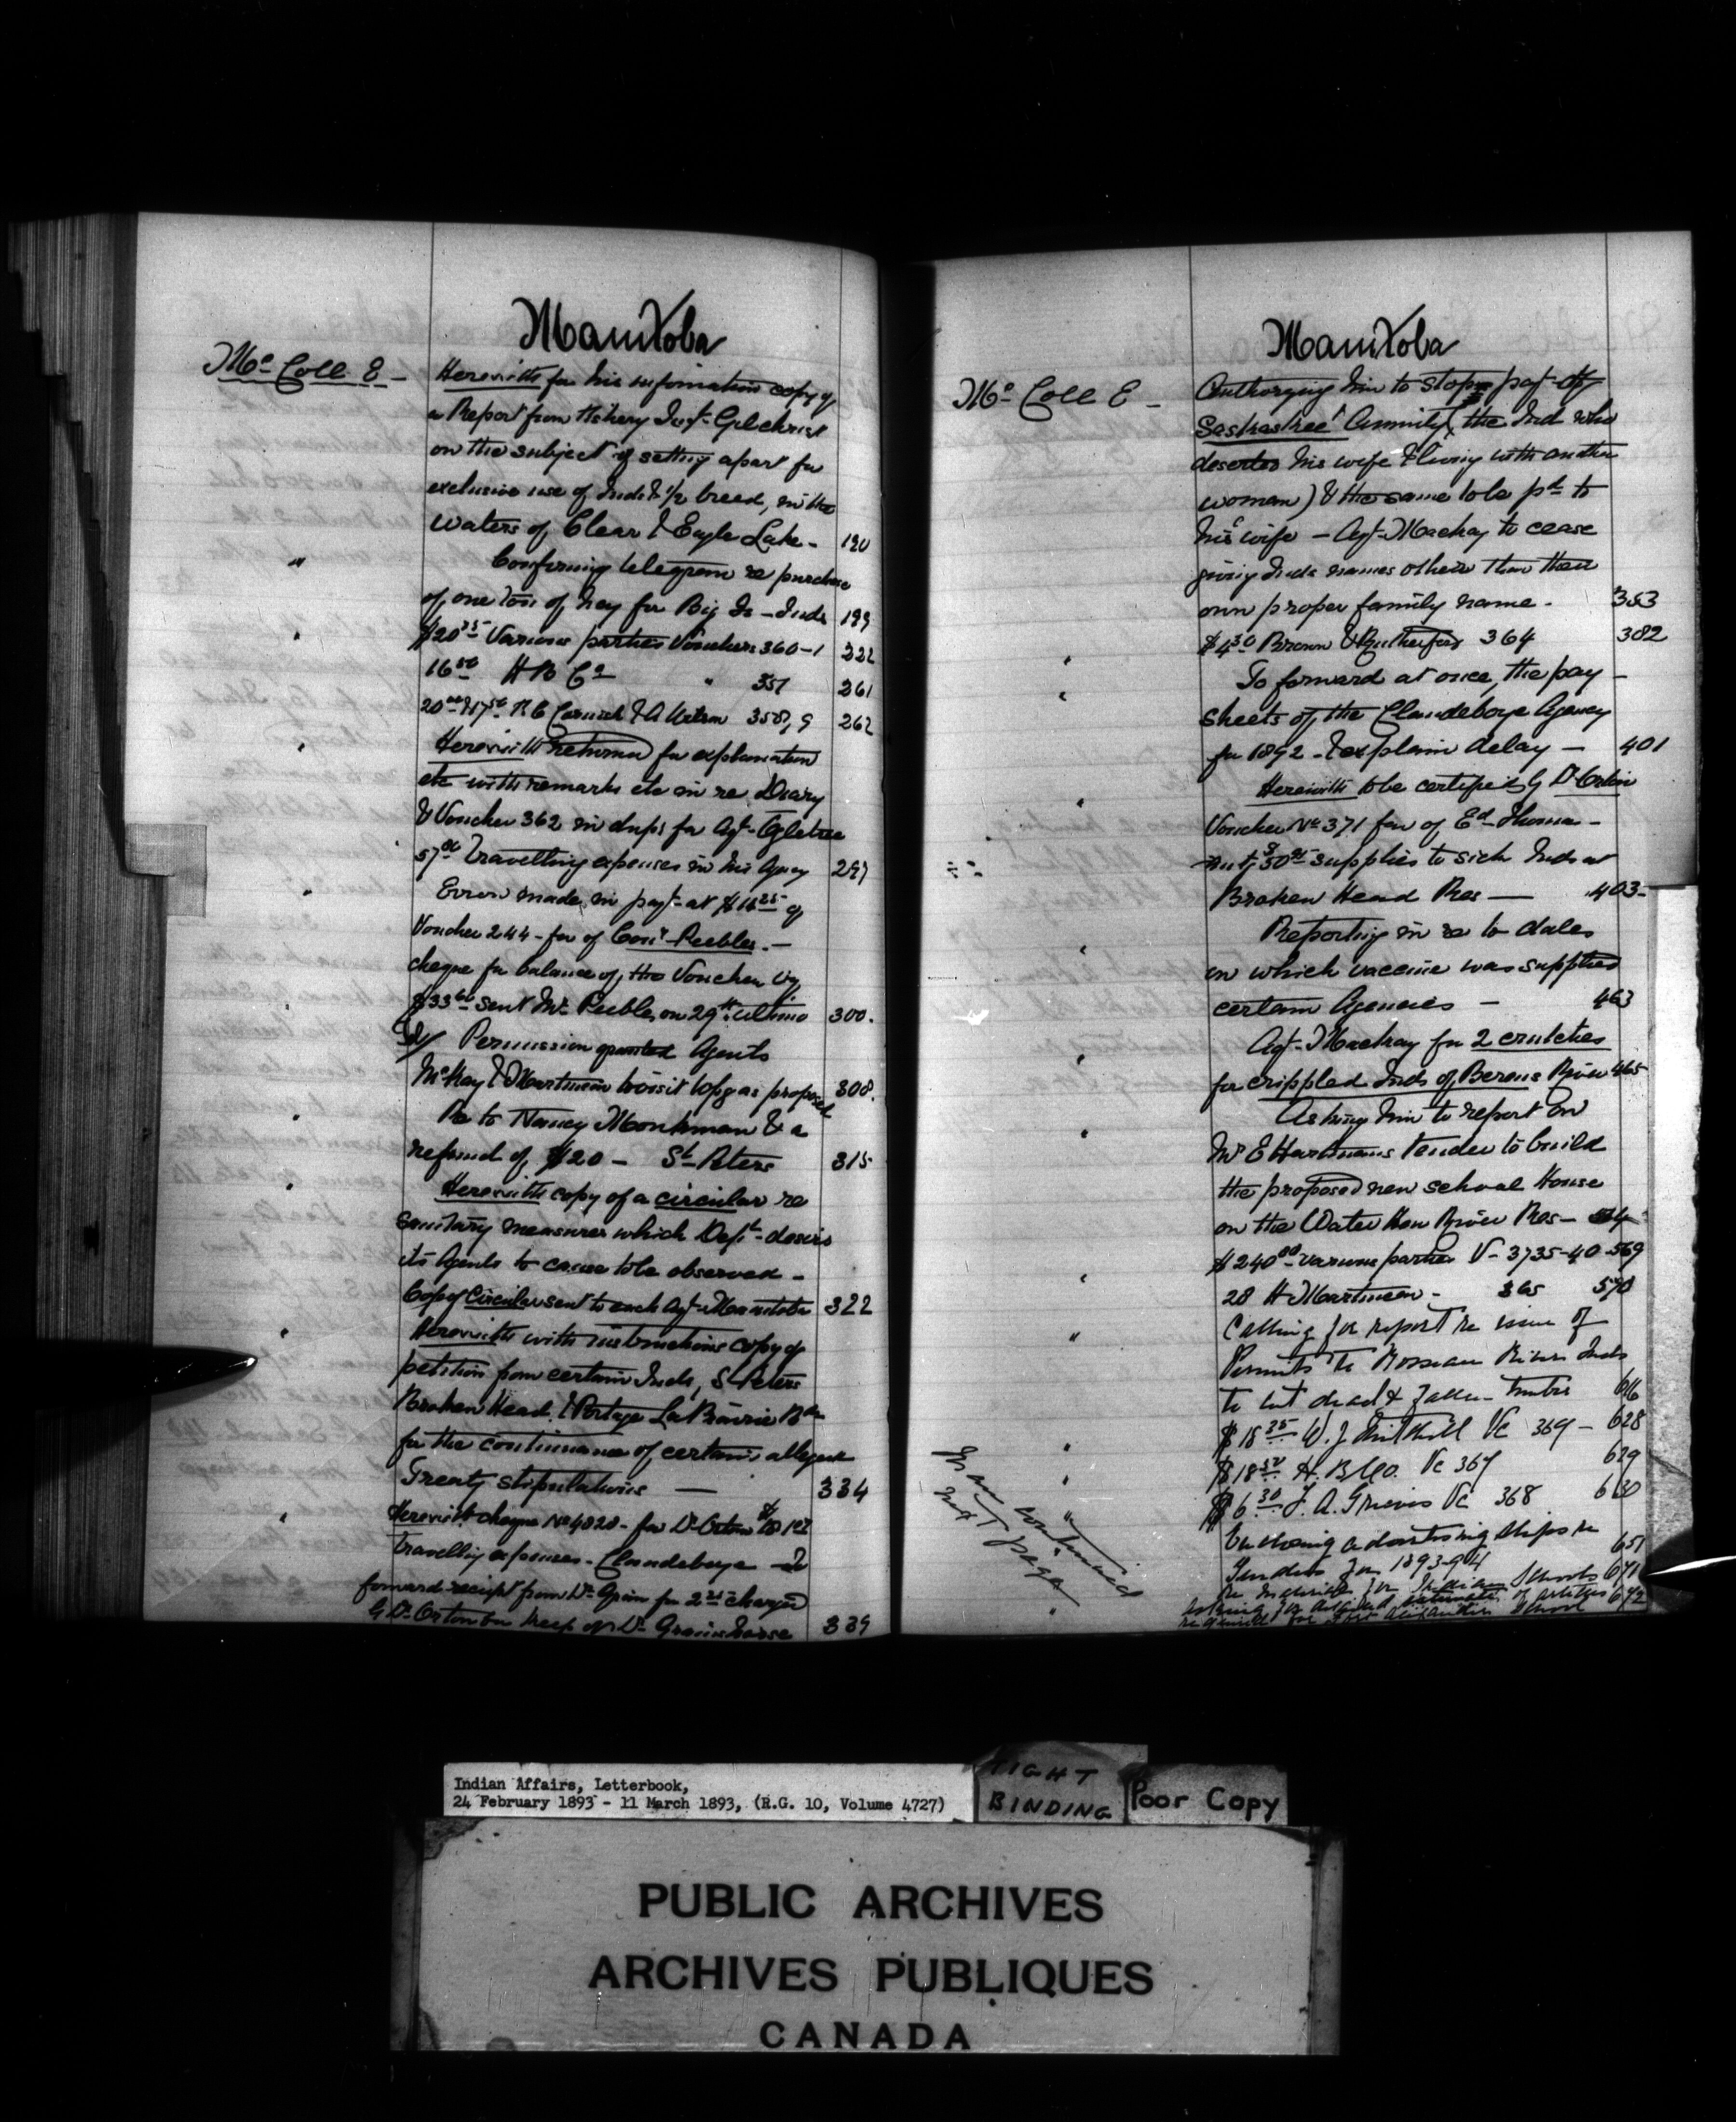 Manitoba
Mc Coll E –
Herewith for his information copy of
a Report from Fishery Inspt Gilchrist
on the subject of setting apart for
exclusive use of Inds & 1/2 breed, in the
waters of Clear & Eagle Lake – 190
" Confirming telegram re purchase
of one ton of hay for Big Is – Inds 199
" $20 Various parties Vouchers 360-1 222
16 50 H B Co " 357 261
20 & 17 50 & A 358, 9 262
" Herewith returned for explanation
etc with remarks etc in re Diary
& Voucher 362 in dup: for Agt – Ogletree
57 Travelling expenses in his Agency
" Error made in payt – at $16 25 of
Voucher 244 – fav of Peebles. –
cheque for balance of the Voucher viz
$33 sent Mr Peebles on 29th ultimo 300.
Permission granted Agents
McKay & Martineau to visit Wpg as proposed 308.
" Re to Nancy Monkman & a
refund of $20 – St – Peters 315
" Herewith copy of a circular re
sanitary measures which Dept – desires
its Agents to cause to be observed –
Copy of Circular sent to each Agt – Manitoba 322
" Herewith with instructions copy of
petition from certain Inds, St – Peters
Broken Head & Portage La Prairie
for the continuance of certain alleged
Treaty stipulations — 334
" Herewith cheque No 4028 – for Dr Orton
travelling expenses – Clandeboye – To
forward receipt from Dr for charged
Dr Orton keep of Dr horse 339
Manitoba
Mc Coll E –
Authorizing him to stop payt of
annuity (the Ind who
deserted his wife & living with another
woman) & the same to be pd to
his wife – Agt – Mackay to cease
giving Inds names other than their
own proper family name – 353
" $4 30 Brown & Rutherford 364 382
" To forward at once, the pay –
sheets of the Clandeboye Agency
for 1892 – & explain delay — 401
" Herewith to be certified by Dr Orton
Voucher No 371 fav of Ed – Thomas –
amt $50 supplies to sick Inds at
Broken Head Res — 403 –
" Reporting in re to dates
on which vaccine was supplied
certain Agencies — 463
" Agt – Mackay for 2 crutches
for crippled Inds of Berens River 465
" Asking him to report on
Mr E Hartmans tender to build
the proposed new school House
on the Water Hen River Res –
" $240 00 various parties V – 3735-40 569
28 H Martineau – 365 570
" Calling for report re issue of
Permits to Rosseau River Inds
to cut dead & fallen timber 616
" $18 25 W. J. Vc 369 – 628
" $18 H. B Co. Vc 367 629
" $6 30 J. A. Grieves Vc 368 630
" Enclosing advertising slips re
Tenders for 1893-94 651
re for Indian Schools 671
Asking for detailed estimate of articles 672
required for school
Man continued
next page
Indian Affairs, Letterbook,
24 February 1893 - 11 March 1893, (R.G. 10, Volume 4727)
TIGHT
BINDING
Poor Copy
PUBLIC ARCHIVES
ARCHIVES PUBLIQUES
CANADA